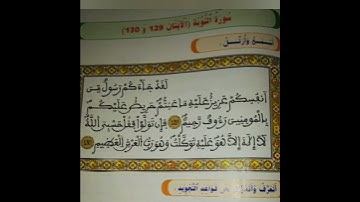 سورة التوبة (الآيتان 129 و 130)
أستمع وأرتل :
لَقَدْ جَآءَكُمْ رَسُولٌ مِّنَ
اَنفُسِكُمْ عَزِيزٌ عَلَيْهِ مَا عَنِتُّمْ حَرِيصٌ عَلَيْكُم
بِالْمُومِنِينَ رَءُوفٌ رَّحِيمٌ (129) فَإِن تَوَلَّوْا فَقُلْ حَسْبِيَ اَللَّهُ
لَآ إِلَٰهَ إِلَّا هُوَ عَلَيْهِ تَوَكَّلْتُ وَهُوَ رَبُّ الْعَرْشِ الْعَظِيمِ (130)
قواعد التجويد